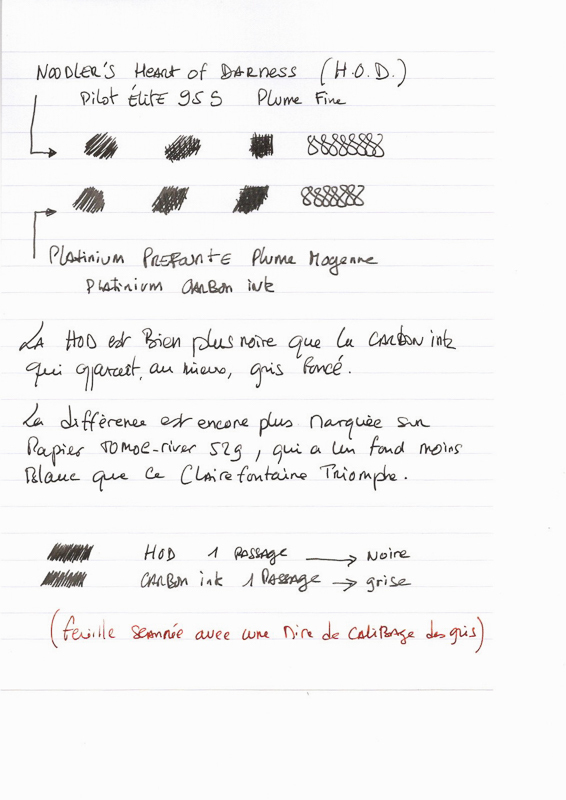 NOODLER'S HEART OF DARNESS (H.O.D.)
PILOT ÉLITE 95 S Plume Fine
PLATINIUM PREFOUNTE Plume Moyenne
PLATINIUM CARBON ink
LA HOD est Bien plus noire que la CARBON ink
qui apparaît, au mieux, gris foncé.
La différence est encore plus marquée sur
Papier TOMOE-river 52g, qui a un fond moins
Blanc que ce Clairefontaine Triomphe.
HOD 1 PASSAGE → Noire
CARBON ink 1 PASSAGE → grise
(feuille scannée avec une mire de CALIBRAGE des gris)